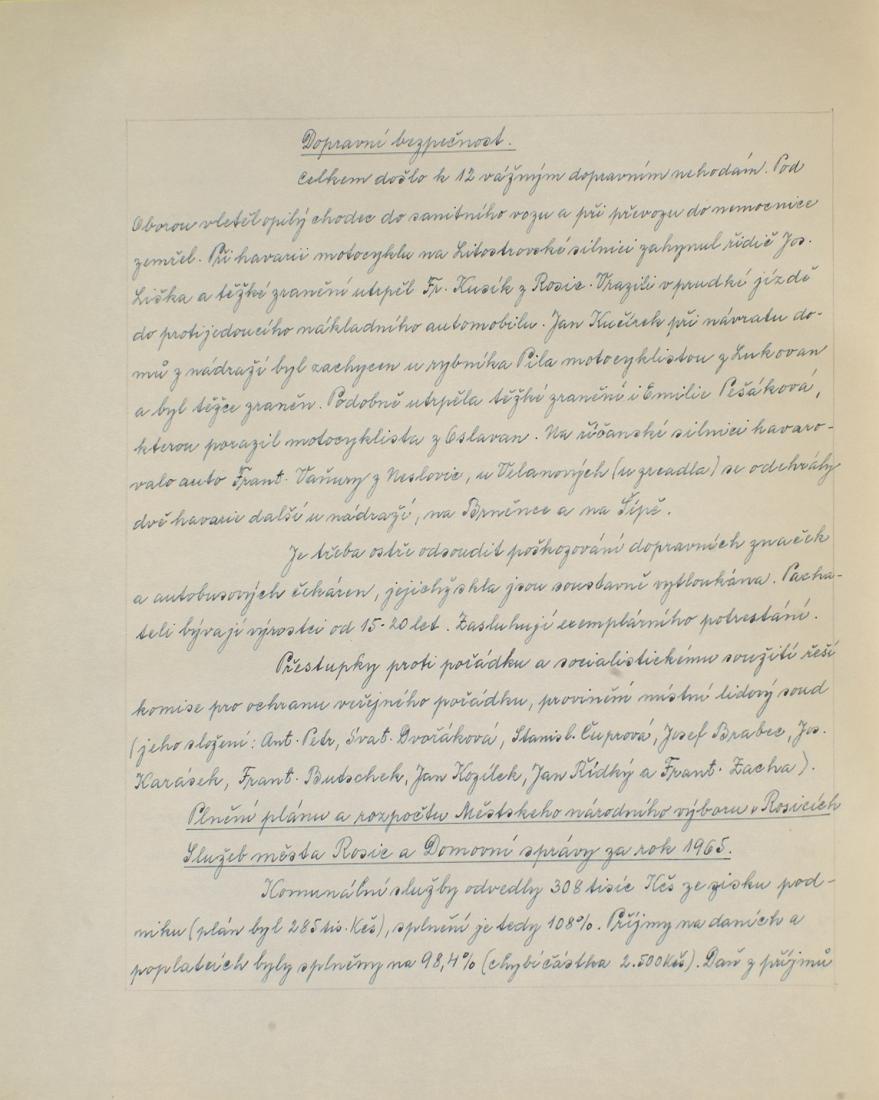 Dopravní bezpečnost.
Celkem došlo k 12 vážným dopravním nehodám. Pod
Oborou vletěl opilý chodec do sanitního vozu a při převozu do nemocnice
zemřel. Při havarii motocyklu na Litostrovské silnici zahynul řidič Jos.
Liška a těžké zranění utrpěl Fr. Kusík z Rosic. Vrazili v prudké jízdě
do protijedoucího nákladního automobilu. Jan Kučírek při návratu do-
mů z nádraží byl zachycen u rybníka Pila motocyklistou z Lukovan
a byl těžce zraněn. Podobně utrpěla těžké zranění i Emilie Pešáková,
kterou porazil motocyklista z Oslavan. Na říčanské silnici havaro-
valo auto Frant. Vaňury z Neslovic, u Velanových (u zrcadla) se odehrály
dvě havarie další u nádraží, na Brněnce a na Šípě.
Je třeba ostře odsoudit poškozování dopravních značek
a autobusových čekáren, jejichž skla jsou soustavně vytloukána. Pacha-
teli bývají výrostci od 15-20 let. Zasluhují exemplárního potrestání.
Přestupky proti pořádku a socialistickému soužití řeší
komise pro ochranu veřejného pořádku, provinění místní lidový soud
(jeho složení: Ant. Petr, Svat. Dvořáková, Stanisl. Čuprová, Josef Brabec, Jos.
Karásek, Frant. Butschek, Jan Kozílek, Jan Řídký a Frant. Zacha).
Plnění plánu a rozpočtu Městskeho národního výboru v Rosicích
Služeb města Rosic a Domovní správy za rok 1965.
Komunální služby odvedly 308 tisíc Kčs ze zisku pod-
niku (plán byl 285 tis. Kčs), splnění je tedy 108%. Příjmy na daních a
poplatcích byly splněny na 98,4% (chybí částka 2.500 Kčs). Daň z příjmů